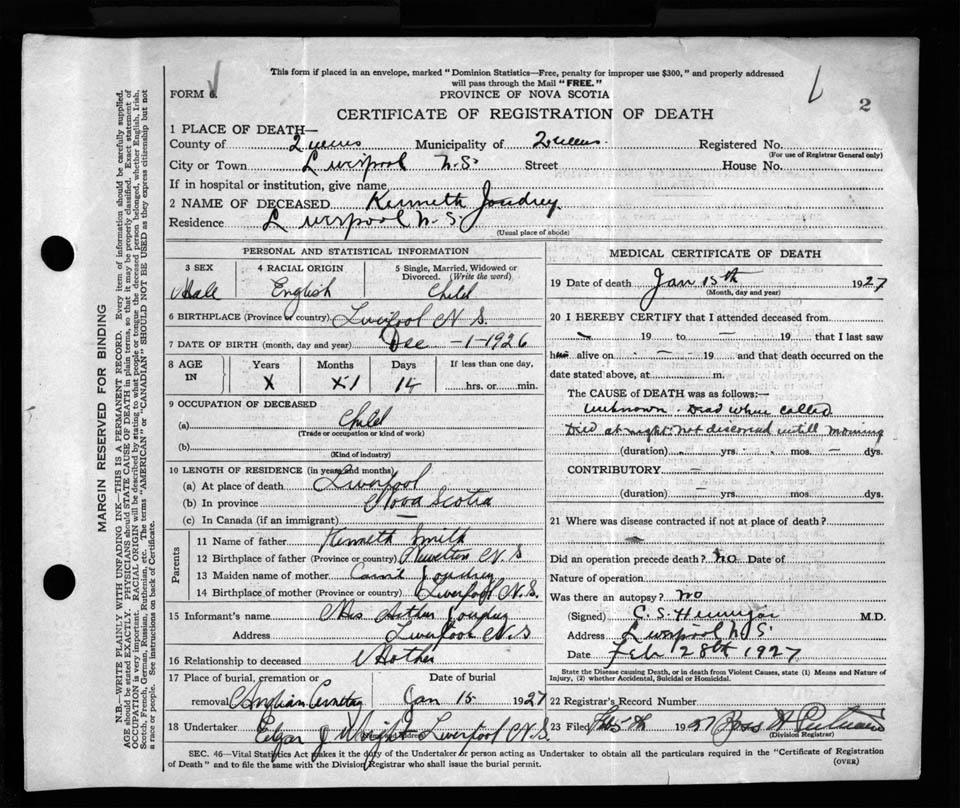 This form if placed in an envelope, marked "Dominion Statistics—Free, penalty for improper use $300," and properly addressed
will pass through the Mail "FREE."
FORM 6.
PROVINCE OF NOVA SCOTIA
2
CERTIFICATE OF REGISTRATION OF DEATH
1 PLACE OF DEATH—
County of Queens Municipality of Queens. Registered No.
(For use of Registrar General only)
City or Town Liverpool N.S. Street House No.
If in hospital or institution, give name
2 NAME OF DECEASED Kenneth Joudrey
Residence Liverpool N.S.
(Usual place of abode)
PERSONAL AND STATISTICAL INFORMATION
3 SEX 4 RACIAL ORIGIN 5 Single, Married, Widowed or
Divorced. (Write the word)
Male English Child
6 BIRTHPLACE (Province or country) Liverpool N.S.
7 DATE OF BIRTH (month, day and year) Dec -1-1926
8 AGE IN Years Months Days If less than one day,
X X1 14 hrs. or min.
9 OCCUPATION OF DECEASED
(a) Child
(Trade or occupation or kind of work)
(b)
(Kind of industry)
10 LENGTH OF RESIDENCE (in years and months)
(a) At place of death Liverpool
(b) In province Nova Scotia
(c) In Canada (if an immigrant) —
Parents
11 Name of father Kenneth Smith
12 Birthplace of father (Province or country) N.S
13 Maiden name of mother Joudrey
14 Birthplace of mother (Province or country) Liverpool N.S.
15 Informant's name Mrs Arthur Joudrey
Address Liverpool N.S
16 Relationship to deceased Mother
17 Place of burial, cremation or Date of burial
removal Anglican Cemetery Jan 15 1927
18 Undertaker Edgar J Wright Liverpool N.S.
MEDICAL CERTIFICATE OF DEATH
19 Date of death Jan 15th 1927
(Month, day and year)
20 I HEREBY CERTIFY that I attended deceased from
— 19 to — 19 that I last saw
him alive on — 19 and that death occurred on the
date stated above, at m.
The CAUSE OF DEATH was as follows:—
Unknown. Dead when called
Died at night. not discovered untill morning
(duration) yrs. mos. — dys.
CONTRIBUTORY —
(duration) — yrs. mos. dys.
21 Where was disease contracted if not at place of death?
Did an operation precede death? No Date of
Nature of operation
Was there an autopsy? No
(Signed) C. S. M.D.
Address Liverpool N.S.
Date Feb 28th 1927
State the Disease causing Death, or in death from Violent Causes, state (1) Means and Nature of
Injury, (2) whether Accidental, Suicidal or Homicidal.
22 Registrar's Record Number
23 Filed 1927
(Division Registrar)
SEC. 46—Vital Statistics Act makes it the duty of the Undertaker or person acting as Undertaker to obtain all the particulars required in the "Certificate of Registration
of Death" and to file the same with the Division Registrar who shall issue the burial permit. (OVER)
MARGIN RESERVED FOR BINDING
N.B.—WRITE PLAINLY WITH UNFADING INK—THIS IS A PERMANENT RECORD. Every item of information should be carefully supplied.
AGE should be stated EXACTLY. PHYSICIANS should STATE CAUSE OF DEATH in plain terms, so that it may be properly classified. Exact statement of
OCCUPATION is very important. RACIAL ORIGIN will be described by stating to what people or tongue the deceased person belonged, whether English, Irish,
Scotch, French, German, Russian, Ruthenian, etc. The terms "AMERICAN" or "CANADIAN" SHOULD NOT BE USED as they express citizenship but not
a race or people. See instructions on back of Certificate.